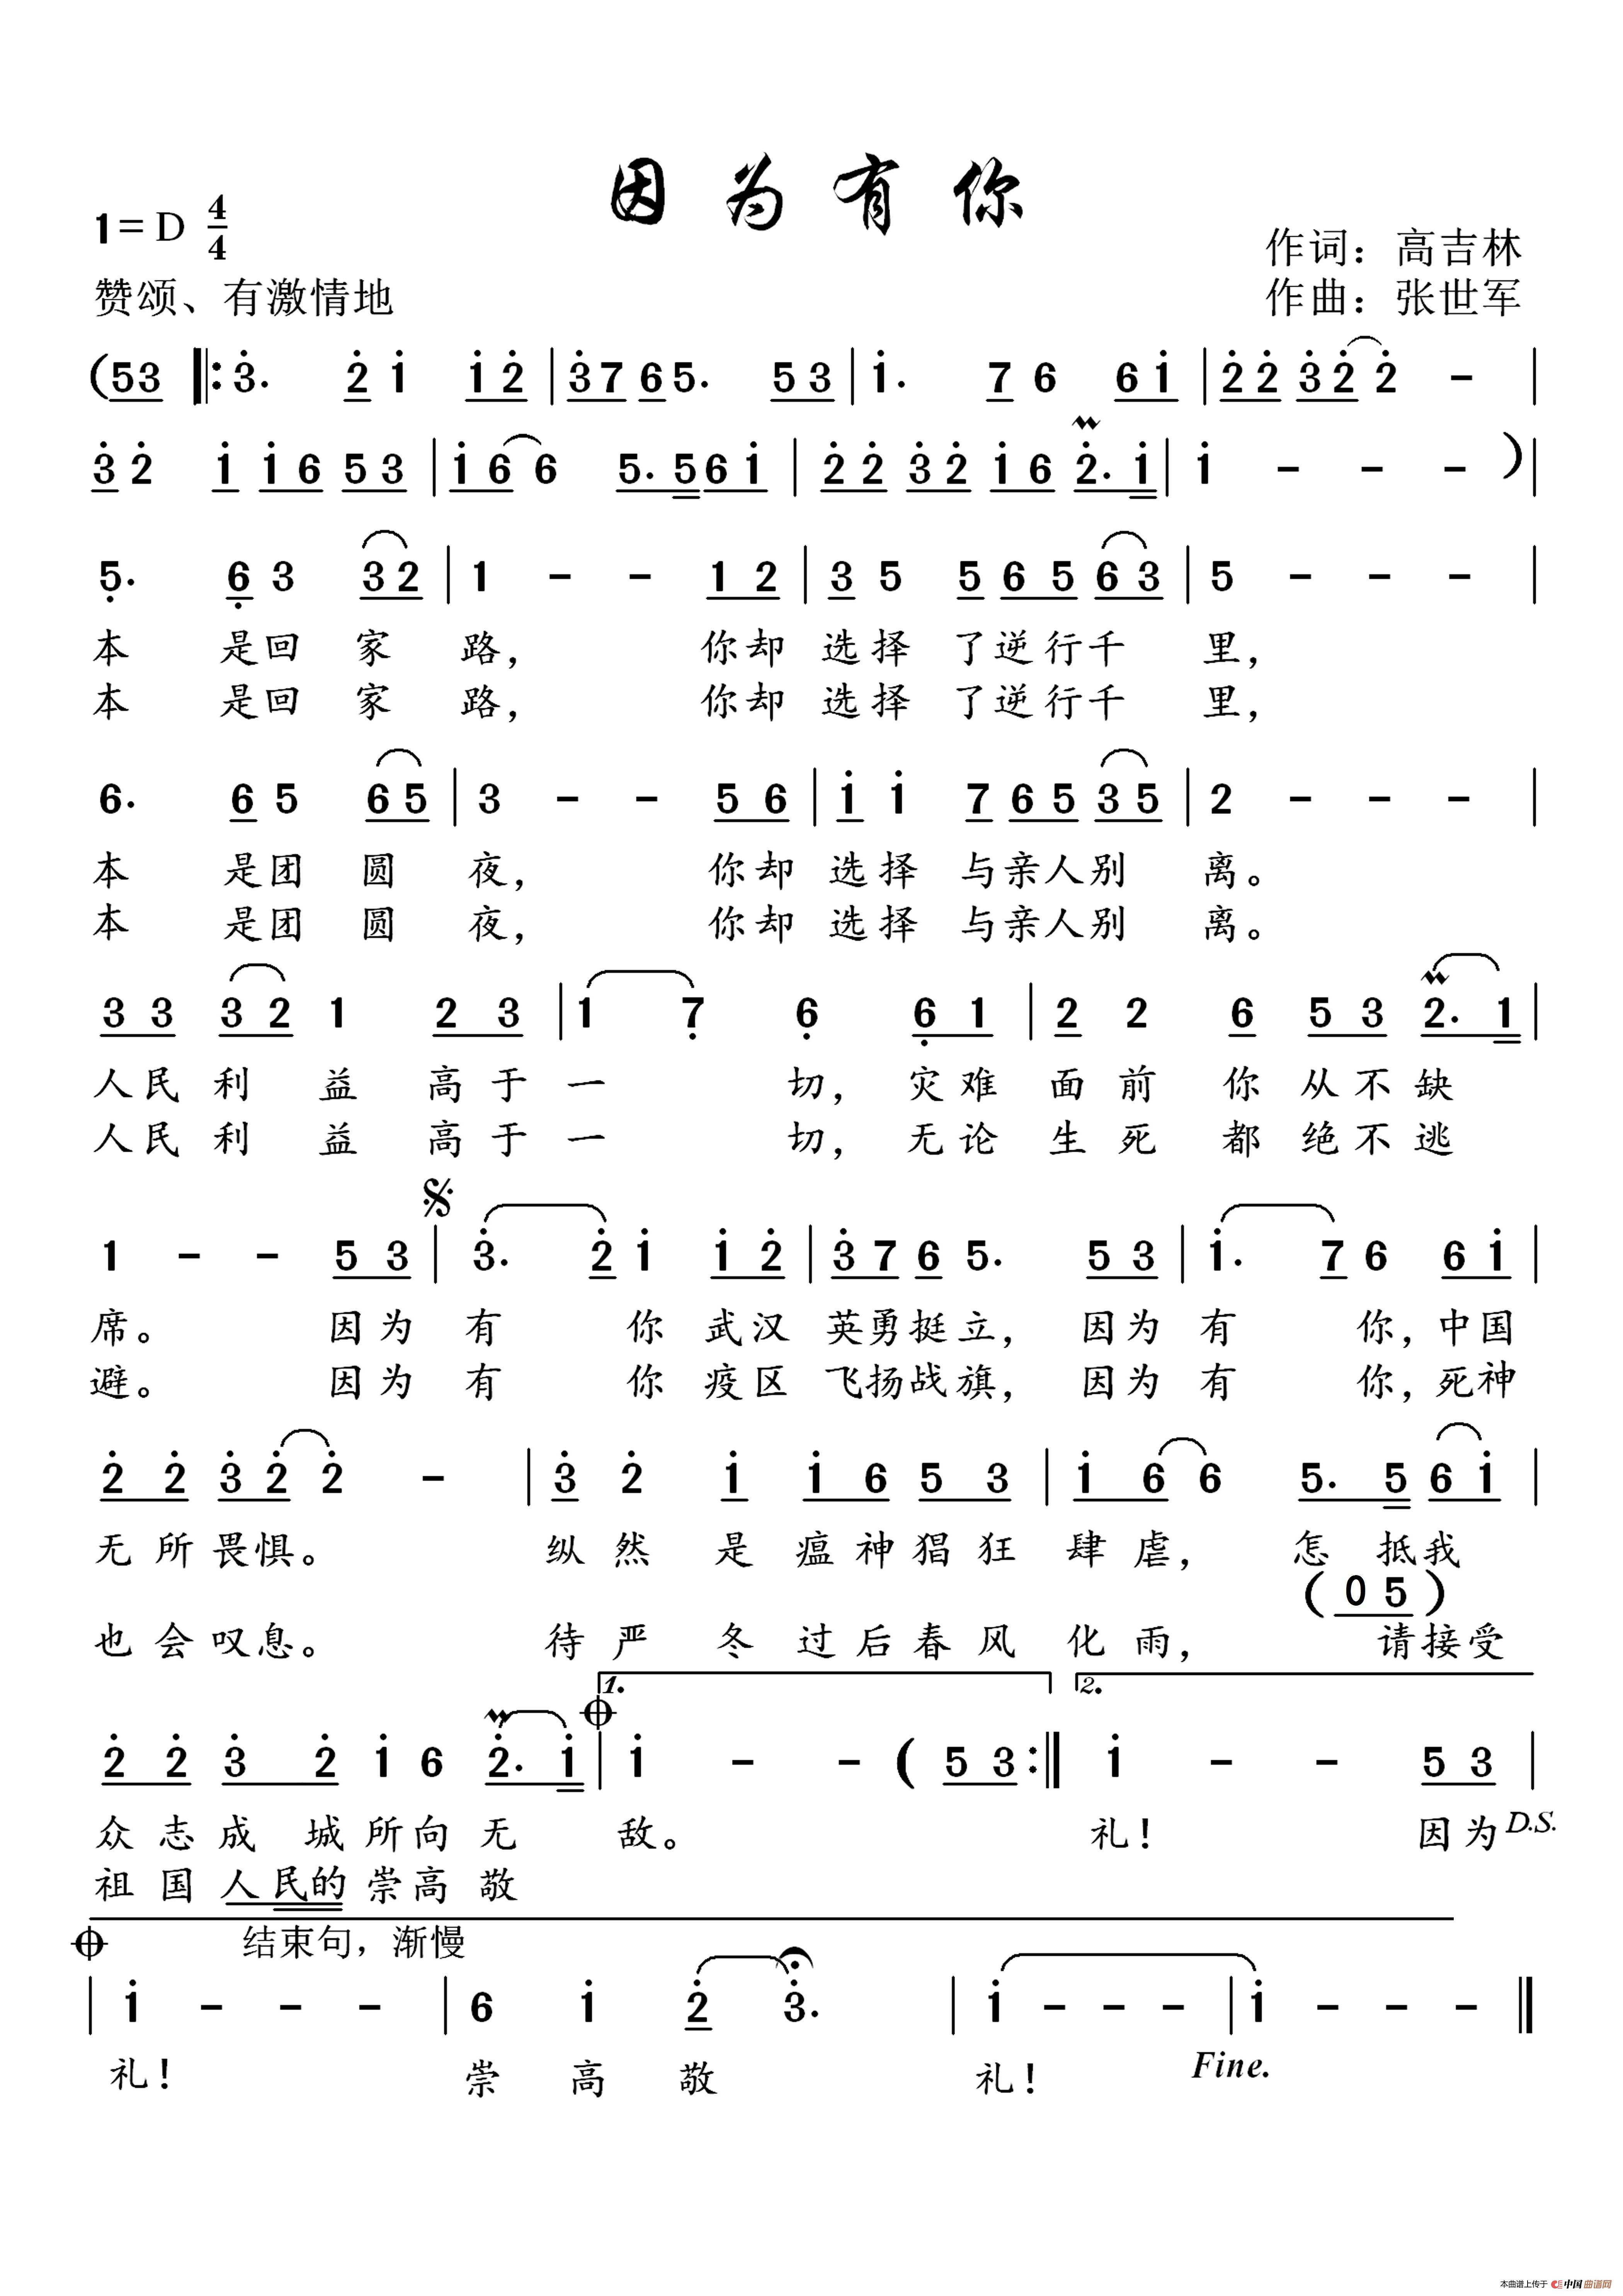 因为有你
1=D 4/4
作词：高吉林
赞颂、有激情地
作曲：张世军
(53 ‖: 3̇. 2̇ 1̇ 1̇ 2̇ | 3̇ 7 6 5. 5 3 | 1̇. 7 6 6 1̇ | 2̇ 2̇ 3̇ 2̇ 2̇ - |
3̇ 2̇ 1̇ 1̇ 6 5 3 | 1̇ 6 6 5. 5 6 1̇ | 2̇ 2̇ 3̇ 2̇ 1̇ 6 2̇. 1̇ | 1̇ - - - ) |
5̣. 6̣ 3 3 2 | 1 - - 1 2 | 3 5 5 6 5 6 3 | 5 - - - |
本 是回 家 路， 你却 选择 了逆行千 里，
本 是回 家 路， 你却 选择 了逆行千 里，
6. 6 5 6 5 | 3 - - 5 6 | 1̇ 1̇ 7 6 5 3 5 | 2 - - - |
本 是团 圆 夜， 你却 选择 与亲人别 离。
本 是团 圆 夜， 你却 选择 与亲人别 离。
3 3 3 2 1 2 3 | 1 7̣ 6̣ 6̣ 1 | 2 2 6 5 3 2. 1 |
人民 利 益 高于 一 切， 灾难 面前 你 从不缺
人民 利 益 高于 一 切， 无论 生死 都 绝不逃
1 - - 5 3 | 3̇. 2̇ 1̇ 1̇ 2̇ | 3̇ 7 6 5. 5 3 | 1̇. 7 6 6 1̇ |
席。 因为 有 你 武汉 英勇挺立， 因为 有 你，中国
避。 因为 有 你 疫区 飞扬战旗， 因为 有 你，死神
2̇ 2̇ 3̇ 2̇ 2̇ - | 3̇ 2̇ 1̇ 1̇ 6 5 3 | 1̇ 6 6 5. 5 6 1̇ |
无所畏惧。 纵然 是 瘟神猖狂 肆虐， 怎 抵我
( 0 5 )
也会叹息。 待严 冬 过后春风 化雨， 请接受
1. 2.
2̇ 2̇ 3̇ 2̇ 1̇ 6 2̇. 1̇ | 1̇ - - ( 5 3 :‖ 1̇ - - 5 3 |
众志成 城所向无 敌。 礼！ 因为 D.S.
祖国人民的崇高敬
结束句，渐慢
| 1̇ - - - | 6 1̇ 2̇ 3̇. | 1̇ - - - | 1̇ - - - ‖
礼！ 崇 高 敬 礼！ Fine.
本曲谱上传于 中国曲谱网